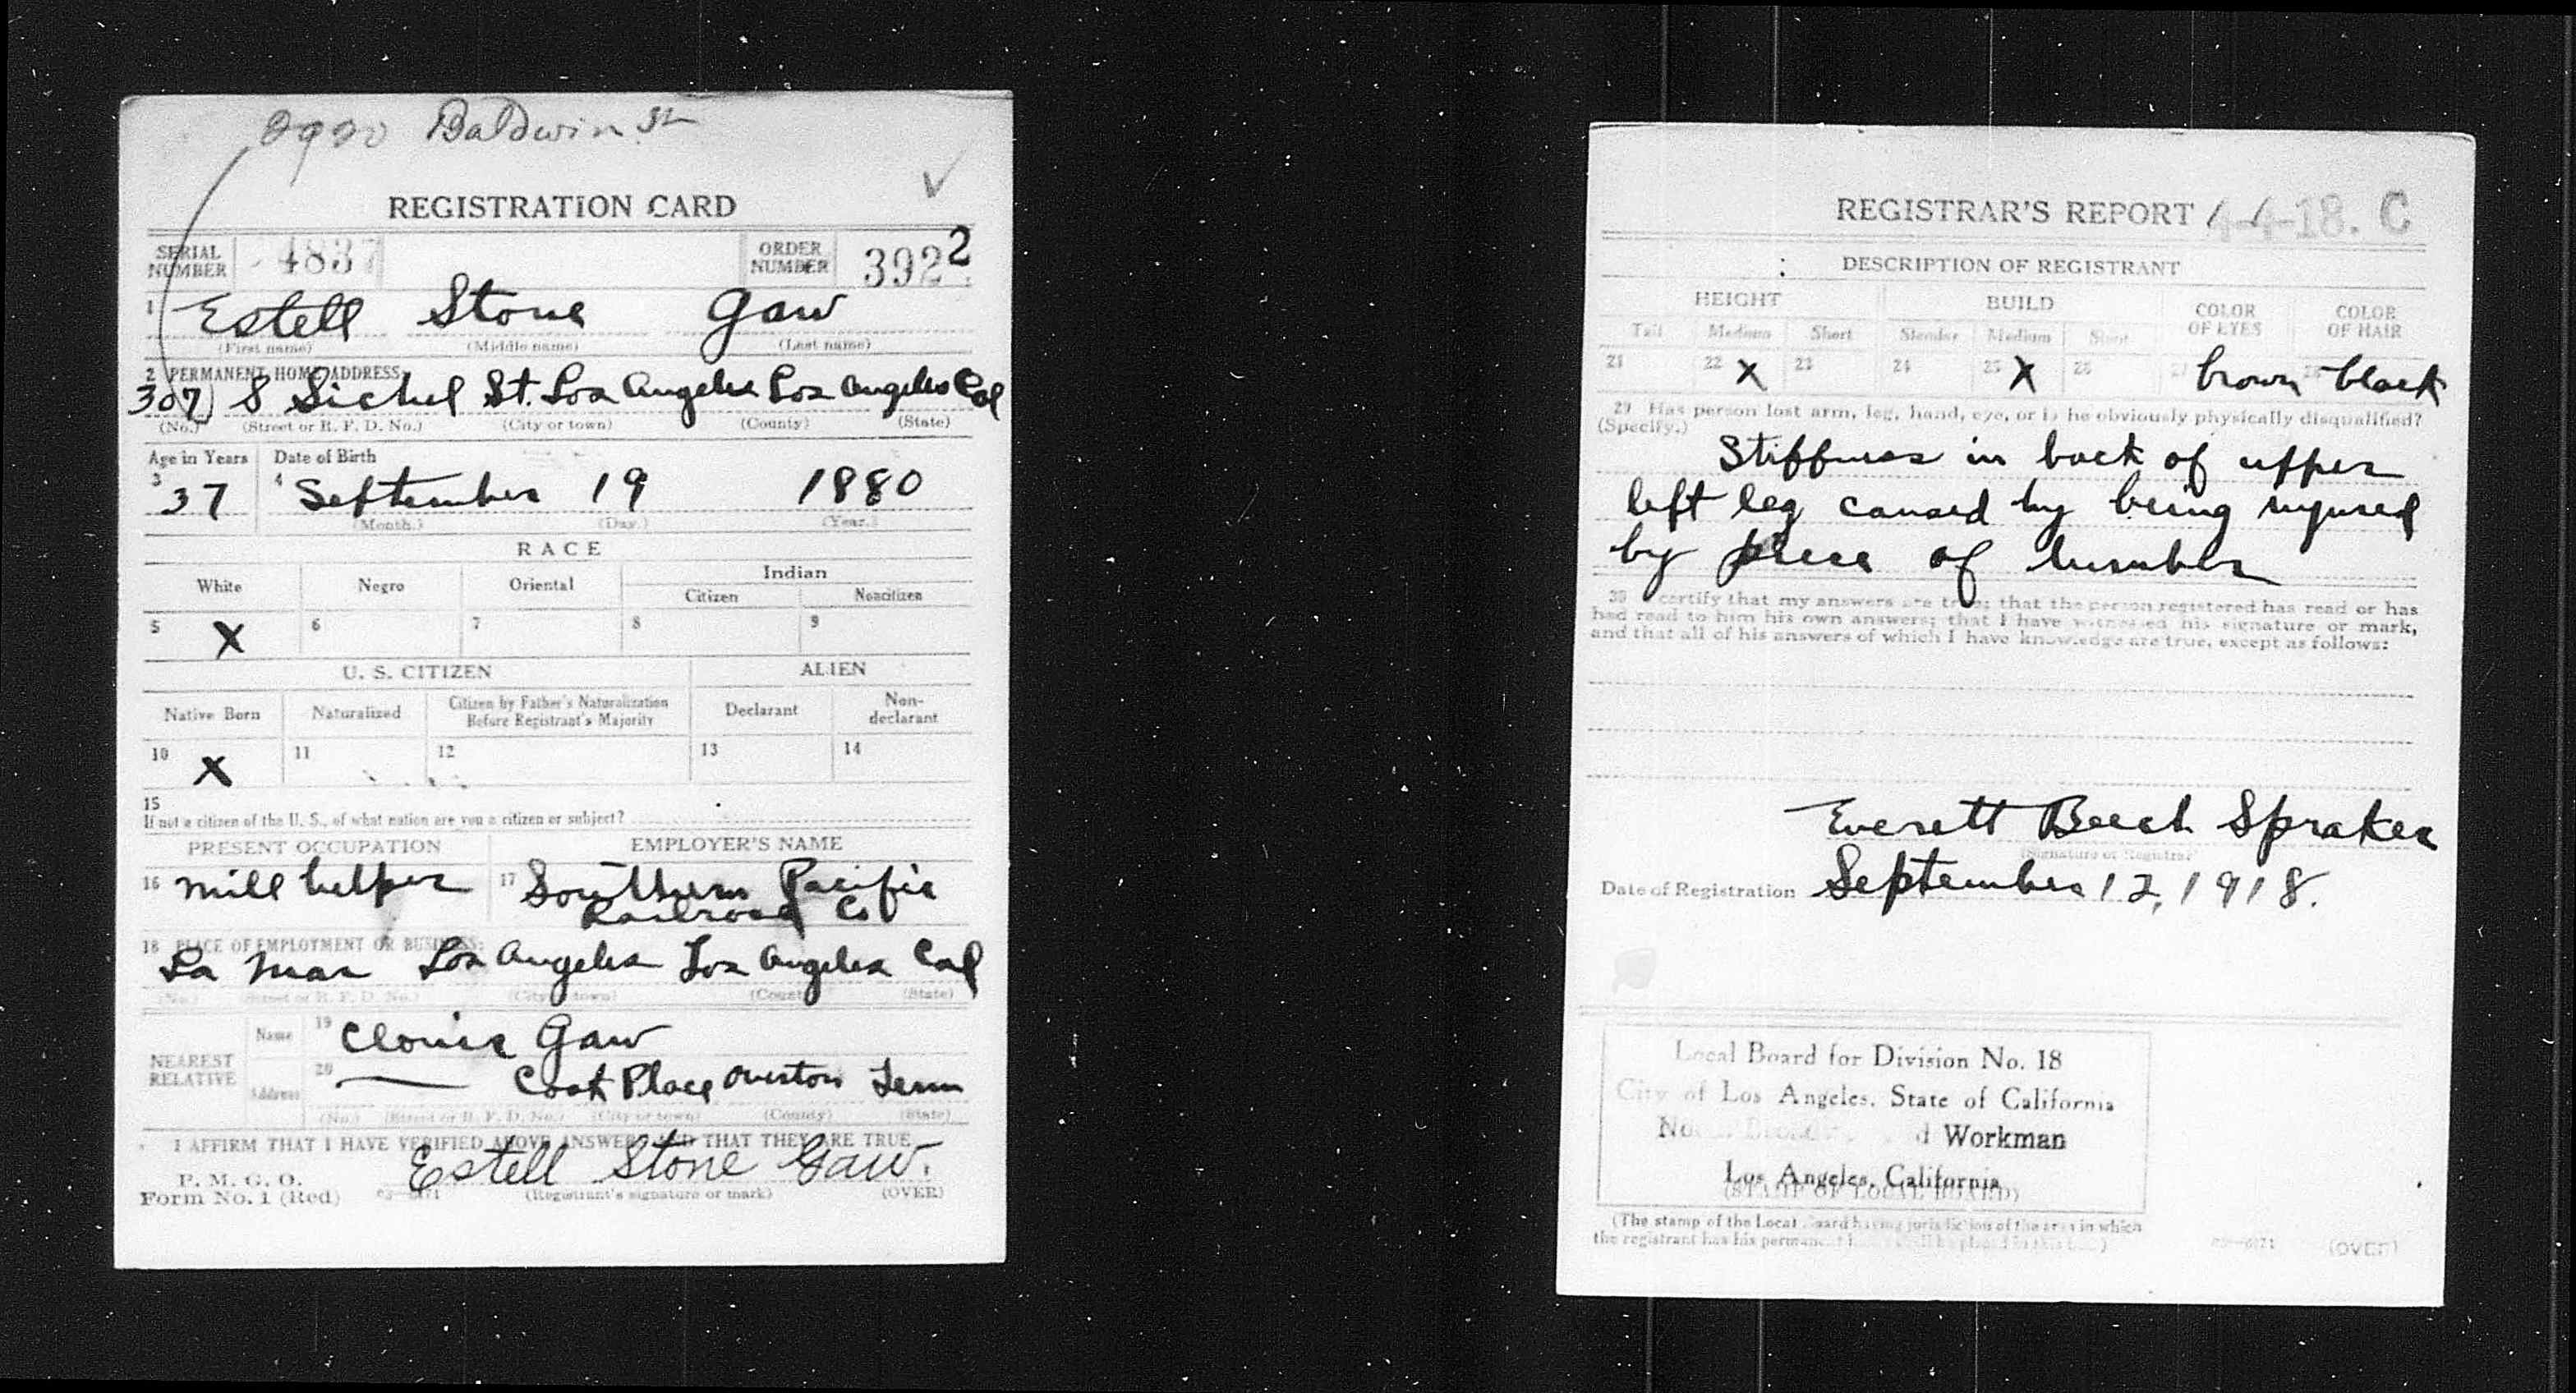 Baldwin St
REGISTRATION CARD
SERIAL NUMBER 4837 ORDER NUMBER 3922
1 Estell Stone Gaw
(First name) (Middle name) (Last name)
2 PERMANENT HOME ADDRESS:
307 S Sichel St. Los Angeles Los Angeles Cal
(No.) (Street or R. F. D. No.) (City or town) (County) (State)
Age in Years Date of Birth
3 37 4 September 19 1880
(Month.) (Day.) (Year.)
RACE
White Negro Oriental Indian
Citizen Noncitizen
5 X 6 7 8 9
U. S. CITIZEN ALIEN
Native Born Naturalized Citizen by Father's Naturalization Before Registrant's Majority Declarant Non-declarant
10 X 11 12 13 14
15
If not a citizen of the U. S., of what nation are you a citizen or subject?
PRESENT OCCUPATION EMPLOYER'S NAME
16 mill helper 17 Southern Pacific
Railroad Co
18 PLACE OF EMPLOYMENT OR BUSINESS:
La Mar Los Angeles Los Angeles Cal
(No.) (Street or R. F. D. No.) (City or town) (County) (State)
NEAREST RELATIVE
Name 19 Clonia Gaw
Address 20 — Cook Place Overton Tenn
(No.) (Street or R. F. D. No.) (City or town) (County) (State)
I AFFIRM THAT I HAVE VERIFIED ABOVE ANSWERS AND THAT THEY ARE TRUE
P. M. G. O.
Form No. 1 (Red) 03—6171 Estell Stone Gaw.
(Registrant's signature or mark) (OVER)
REGISTRAR'S REPORT 4-4-18. C
DESCRIPTION OF REGISTRANT
HEIGHT BUILD COLOR OF EYES COLOR OF HAIR
Tall Medium Short Slender Medium Stout
21 22 X 23 24 25 X 26 27 brown 28 black
29 Has person lost arm, leg, hand, eye, or is he obviously physically disqualified?
(Specify.)
Stiffness in back of upper
left leg caused by being injured
by piece of lumber
30 I certify that my answers are true; that the person registered has read or has
had read to him his own answers; that I have witnessed his signature or mark,
and that all of his answers of which I have knowledge are true, except as follows:
Everett Beech Spraker
(Signature of Registrar)
Date of Registration September 12, 1918.
Local Board for Division No. 18
City of Los Angeles, State of California
Workman
Los Angeles, California
(STAMP OF LOCAL BOARD)
(The stamp of the Local Board having jurisdiction of the area in which
the registrant has his permanent home shall be placed in this box.)
03—6171 (OVER)